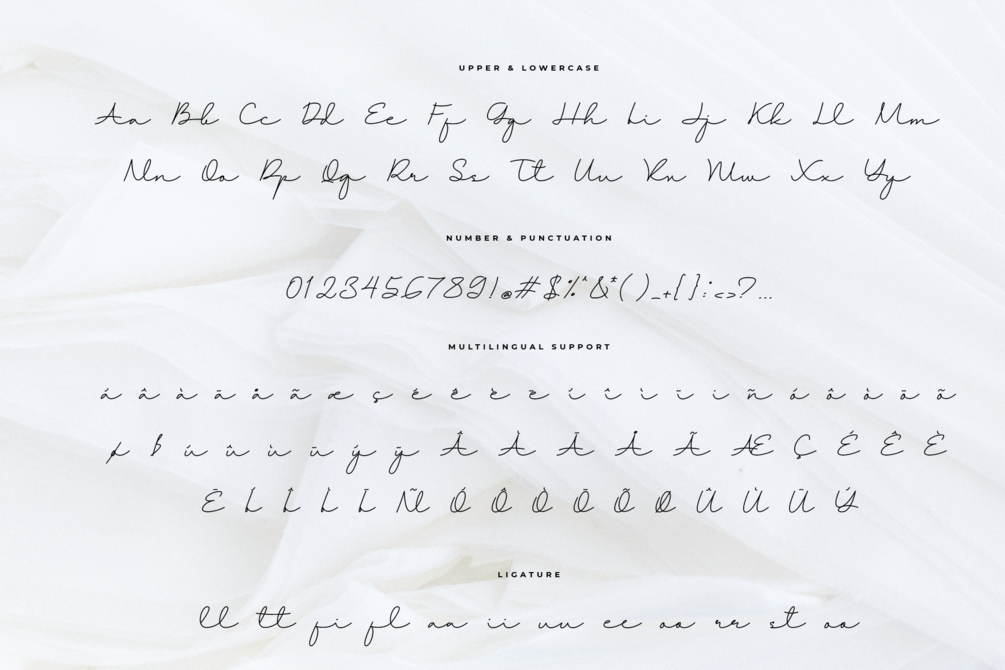 UPPER & LOWERCASE
Aa Bb Cc Dd Ee Ff Gg Hh Ii Jj Kk Ll Mm
Nn Oo Pp Qq Rr Ss Tt Uu Vv Ww Xx Yy
NUMBER & PUNCTUATION
0123456789!@#$%^&*()_+{}:<>?...
MULTILINGUAL SUPPORT
á â à ä å ã æ ç é ê è ë í î ì ï i ñ ó ô ò ö õ
ø þ ú û ù ü ý ÿ Â À Ä Å Ã Æ Ç É Ê È
Ë Í Î Ì Ï Ñ Ó Ô Ò Ö Õ Ø Û Ù Ü Ý
LIGATURE
ll tt fi fl aa ii uu ee oo rr st oo